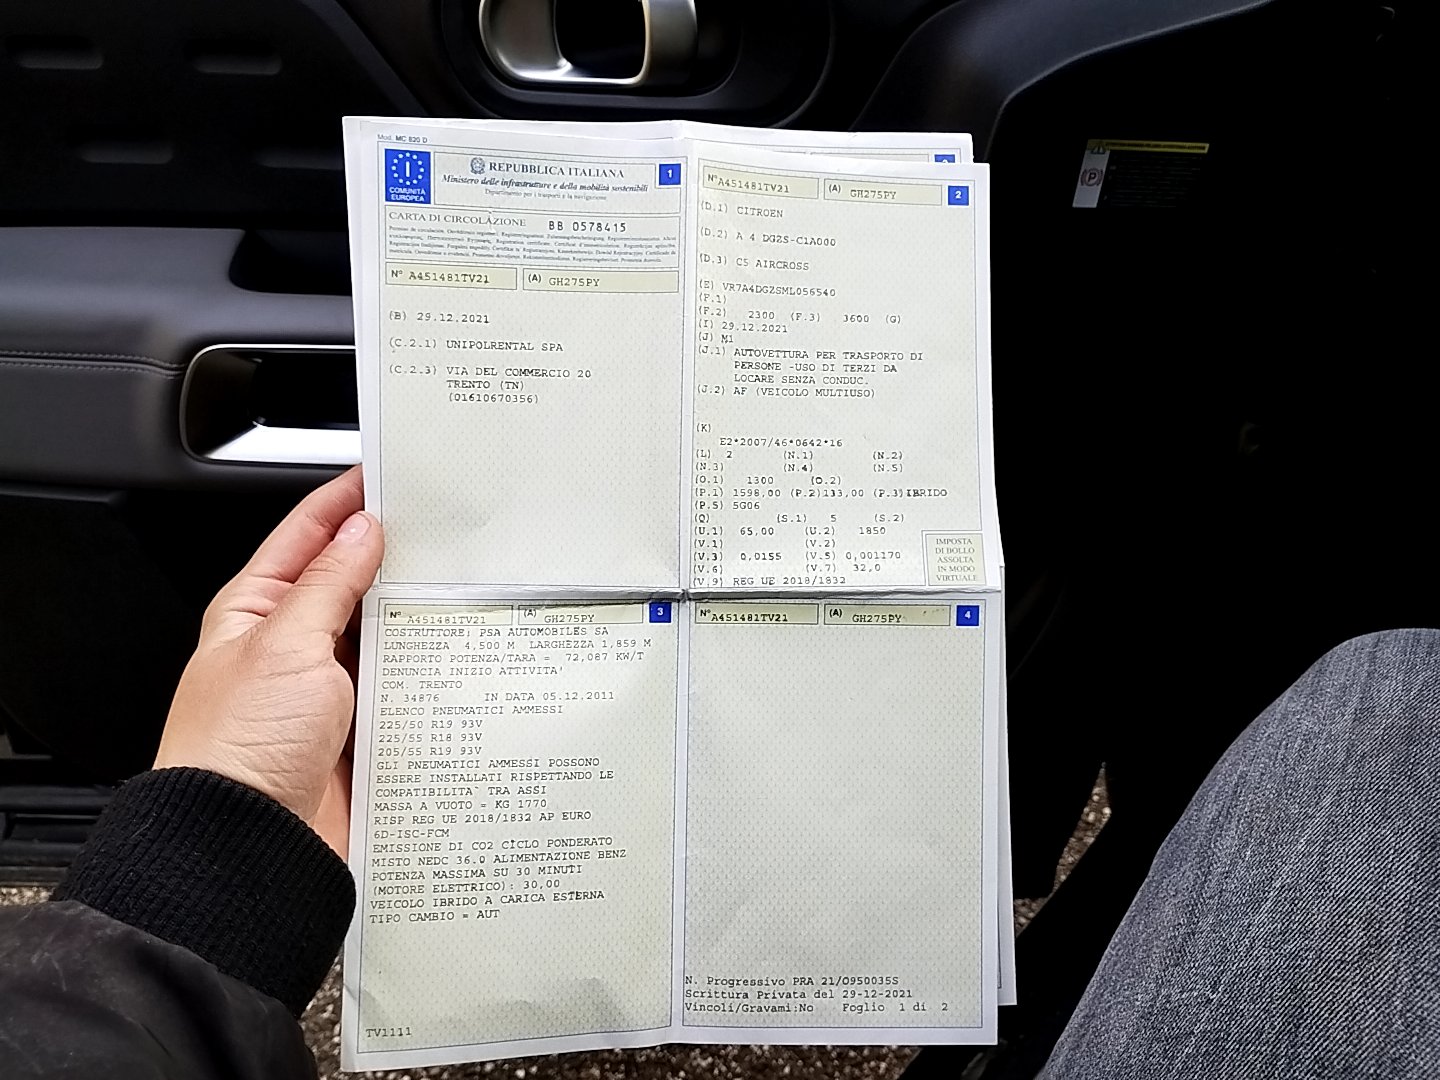 Mod. MC 820 D
COMUNITÀ
EUROPEA
REPUBBLICA ITALIANA
Ministero delle infrastrutture e della mobilità sostenibili
Dipartimento per i trasporti e la navigazione
1
CARTA DI CIRCOLAZIONE BB 0578415
N° A451481TV21 (A) GH275PY
(B) 29.12.2021
(C.2.1) UNIPOLRENTAL SPA
(C.2.3) VIA DEL COMMERCIO 20
TRENTO (TN)
(01610670356)
N° A451481TV21 (A) GH275PY 2
(D.1) CITROEN
(D.2) A 4 DGZS-C1A000
(D.3) C5 AIRCROSS
(E) VR7A4DGZSML056540
(F.1)
(F.2) 2300 (F.3) 3600 (G)
(I) 29.12.2021
(J) M1
(J.1) AUTOVETTURA PER TRASPORTO DI
PERSONE -USO DI TERZI DA
LOCARE SENZA CONDUC.
(J.2) AF (VEICOLO MULTIUSO)
(K)
E2*2007/46*0642*16
(L) 2 (N.1) (N.2)
(N.3) (N.4) (N.5)
(O.1) 1300 (O.2)
(P.1) 1598,00 (P.2)133,00 (P.3)IBRIDO
(P.5) 5G06
(Q) (S.1) 5 (S.2)
(U.1) 65,00 (U.2) 1850
(V.1) (V.2)
(V.3) 0,0155 (V.5) 0,001170
(V.6) (V.7) 32,0
(V.9) REG UE 2018/1832
IMPOSTA
DI BOLLO
ASSOLTA
IN MODO
VIRTUALE
N° A451481TV21 (A) GH275PY 3
COSTRUTTORE: PSA AUTOMOBILES SA
LUNGHEZZA 4,500 M LARGHEZZA 1,859 M
RAPPORTO POTENZA/TARA = 72,087 KW/T
DENUNCIA INIZIO ATTIVITA'
COM. TRENTO
N. 34876 IN DATA 05.12.2011
ELENCO PNEUMATICI AMMESSI
225/50 R19 93V
225/55 R18 93V
205/55 R19 93V
GLI PNEUMATICI AMMESSI POSSONO
ESSERE INSTALLATI RISPETTANDO LE
COMPATIBILITA` TRA ASSI
MASSA A VUOTO = KG 1770
RISP REG UE 2018/1832 AP EURO
6D-ISC-FCM
EMISSIONE DI CO2 CICLO PONDERATO
MISTO NEDC 36.0 ALIMENTAZIONE BENZ
POTENZA MASSIMA SU 30 MINUTI
(MOTORE ELETTRICO): 30,00
VEICOLO IBRIDO A CARICA ESTERNA
TIPO CAMBIO = AUT
TV1111
N° A451481TV21 (A) GH275PY 4
N. Progressivo PRA 21/O950035S
Scrittura Privata del 29-12-2021
Vincoli/Gravami:No Foglio 1 di 2